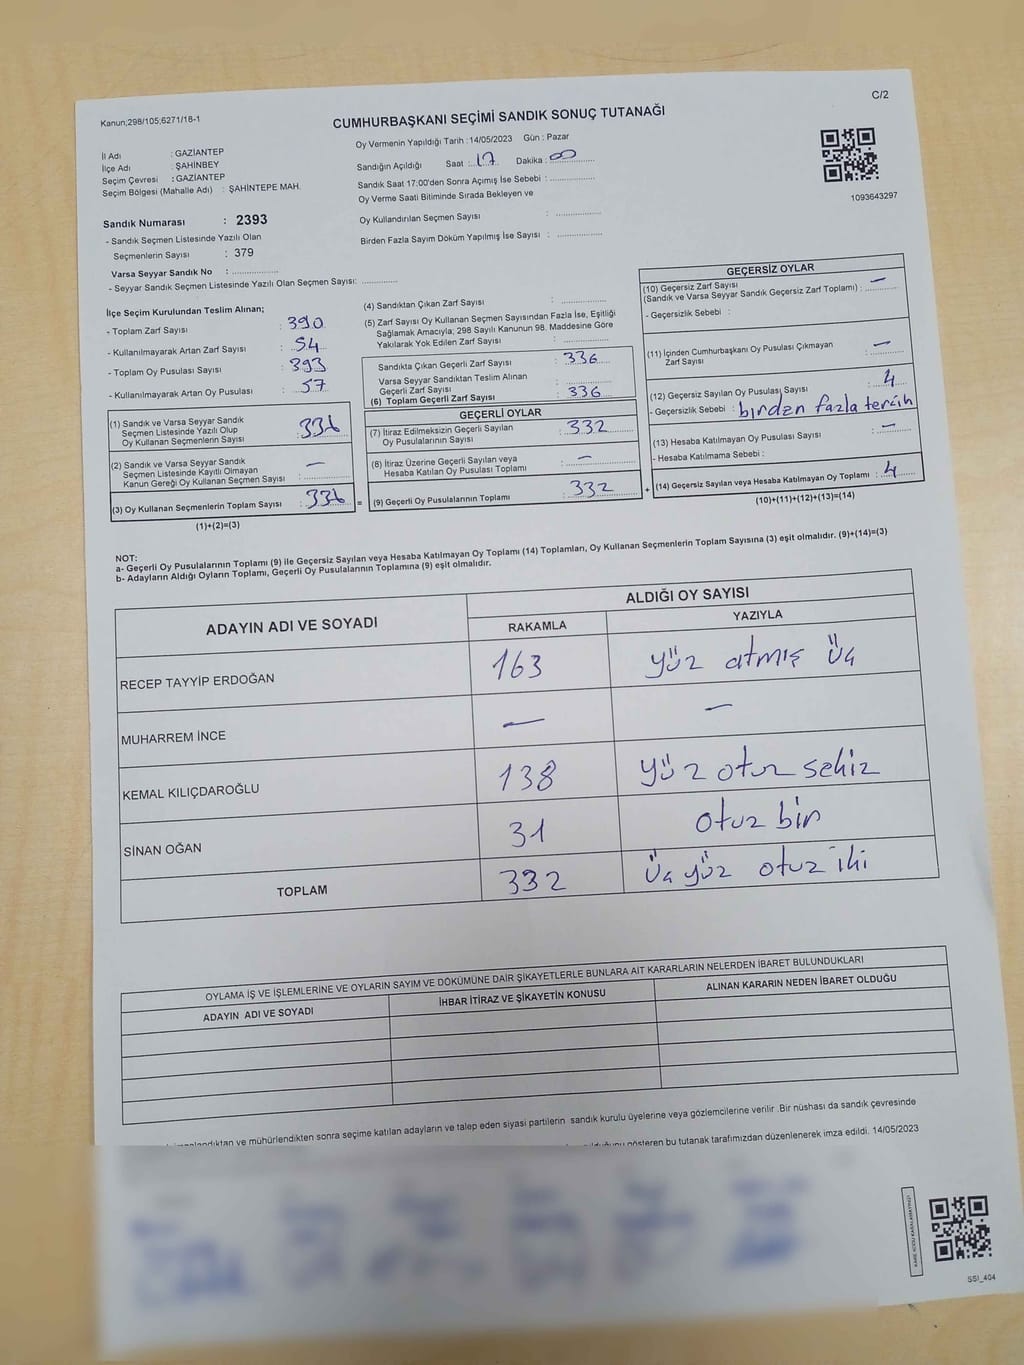 C/2
Kanun;298/105;6271/18-1
CUMHURBAŞKANI SEÇİMİ SANDIK SONUÇ TUTANAĞI
İl Adı : GAZİANTEP
İlçe Adı : ŞAHİNBEY
Seçim Çevresi : GAZİANTEP
Seçim Bölgesi (Mahalle Adı) : ŞAHİNTEPE MAH.
Oy Vermenin Yapıldığı Tarih : 14/05/2023 Gün : Pazar
Sandığın Açıldığı Saat : 17 Dakika : 00
Sandık Saat 17:00'den Sonra Açımış İse Sebebi :
Oy Verme Saati Bitiminde Sırada Bekleyen ve
Oy Kullandırılan Seçmen Sayısı :
Birden Fazla Sayım Döküm Yapılmış İse Sayısı :
1093643297
Sandık Numarası : 2393
- Sandık Seçmen Listesinde Yazılı Olan
Seçmenlerin Sayısı : 379
Varsa Seyyar Sandık No :
- Seyyar Sandık Seçmen Listesinde Yazılı Olan Seçmen Sayısı:
İlçe Seçim Kurulundan Teslim Alınan;
- Toplam Zarf Sayısı : 390
- Kullanılmayarak Artan Zarf Sayısı : 54
- Toplam Oy Pusulası Sayısı : 393
- Kullanılmayarak Artan Oy Pusulası : 57
(1) Sandık ve Varsa Seyyar Sandık
Seçmen Listesinde Yazılı Olup
Oy Kullanan Seçmenlerin Sayısı : 336
(2) Sandık ve Varsa Seyyar Sandık
Seçmen Listesinde Kayıtlı Olmayan
Kanun Gereği Oy Kullanan Seçmen Sayısı : —
(3) Oy Kullanan Seçmenlerin Toplam Sayısı : 336
(1)+(2)=(3)
=
(4) Sandıktan Çıkan Zarf Sayısı :
(5) Zarf Sayısı Oy Kullanan Seçmen Sayısından Fazla İse, Eşitliği
Sağlamak Amacıyla; 298 Sayılı Kanunun 98. Maddesine Göre
Yakılarak Yok Edilen Zarf Sayısı :
Sandıkta Çıkan Geçerli Zarf Sayısı : 336
Varsa Seyyar Sandıktan Teslim Alınan
Geçerli Zarf Sayısı :
(6) Toplam Geçerli Zarf Sayısı : 336
GEÇERLİ OYLAR
(7) İtiraz Edilmeksizin Geçerli Sayılan
Oy Pusulalarının Sayısı : 332
(8) İtiraz Üzerine Geçerli Sayılan veya
Hesaba Katılan Oy Pusulası Toplamı : —
(9) Geçerli Oy Pusulalarının Toplamı : 332
+
GEÇERSİZ OYLAR
(10) Geçersiz Zarf Sayısı
(Sandık ve Varsa Seyyar Sandık Geçersiz Zarf Toplamı) : —
- Geçersizlik Sebebi :
(11) İçinden Cumhurbaşkanı Oy Pusulası Çıkmayan
Zarf Sayısı : —
(12) Geçersiz Sayılan Oy Pusulası Sayısı : 4
- Geçersizlik Sebebi : birden fazla tercih
(13) Hesaba Katılmayan Oy Pusulası Sayısı : —
- Hesaba Katılmama Sebebi :
(14) Geçersiz Sayılan veya Hesaba Katılmayan Oy Toplamı : 4
(10)+(11)+(12)+(13)=(14)
NOT:
a- Geçerli Oy Pusulalarının Toplamı (9) ile Geçersiz Sayılan veya Hesaba Katılmayan Oy Toplamı (14) Toplamları, Oy Kullanan Seçmenlerin Toplam Sayısına (3) eşit olmalıdır. (9)+(14)=(3)
b- Adayların Aldığı Oyların Toplamı, Geçerli Oy Pusulalarının Toplamına (9) eşit olmalıdır.
ADAYIN ADI VE SOYADI
ALDIĞI OY SAYISI
RAKAMLA YAZIYLA
RECEP TAYYİP ERDOĞAN 163 yüz atmış üç
MUHARREM İNCE — —
KEMAL KILIÇDAROĞLU 138 yüz otuz sekiz
SİNAN OĞAN 31 otuz bir
TOPLAM 332 üç yüz otuz iki
OYLAMA İŞ VE İŞLEMLERİNE VE OYLARIN SAYIM VE DÖKÜMÜNE DAİR ŞİKAYETLERLE BUNLARA AİT KARARLARIN NELERDEN İBARET BULUNDUKLARI
ADAYIN ADI VE SOYADI İHBAR İTİRAZ VE ŞİKAYETİN KONUSU ALINAN KARARIN NEDEN İBARET OLDUĞU
ve mühürlendikten sonra seçime katılan adayların ve talep eden siyasi partilerin sandık kurulu üyelerine veya gözlemcilerine verilir .Bir nüshası da sandık çevresinde
gösteren bu tutanak tarafımızdan düzenlenerek imza edildi. 14/05/2023
SSI_404